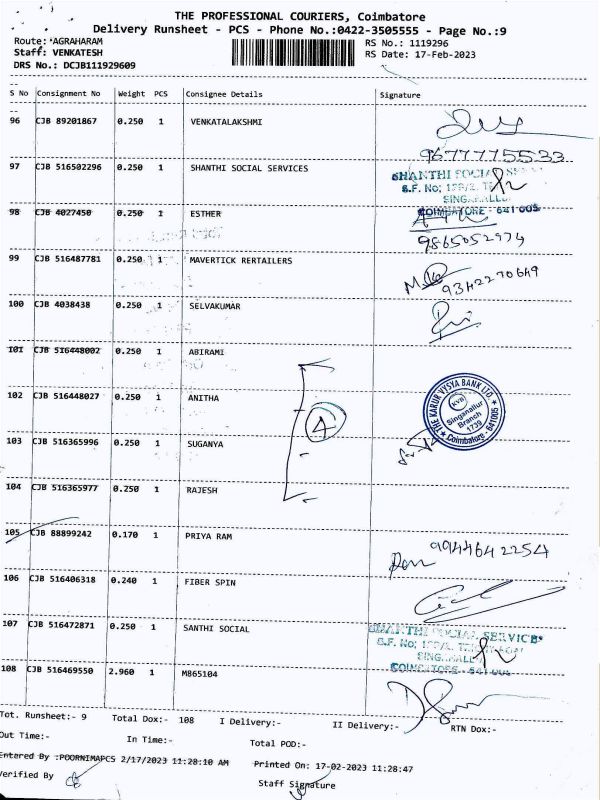 THE PROFESSIONAL COURIERS, Coimbatore
Delivery Runsheet - PCS - Phone No.:0422-3505555 - Page No.:9
Route: AGRAHARAM RS No.: 1119296
Staff: VENKATESH RS Date: 17-Feb-2023
DRS No.: DCJB111929609
S No Consignment No Weight PCS Consignee Details Signature
96 CJB 89201867 0.250 1 VENKATALAKSHMI
9677775533
97 CJB 516502296 0.250 1 SHANTHI SOCIAL SERVICES
SHANTHI SOCIAL
S.F. No;
COIMBATORE - 641 005
98 CJB 4027450 0.250 1 ESTHER
9865052974
99 CJB 516487781 0.250 1 MAVERTICK RERTAILERS
9342270649
100 CJB 4038438 0.250 1 SELVAKUMAR
101 CJB 516448002 0.250 1 ABIRAMI
102 CJB 516448027 0.250 1 ANITHA
THE KARUR VYSYA BANK LTD
KVB
Singanallur
Branch
1739
Coimbatore - 641005
4
103 CJB 516365996 0.250 1 SUGANYA
104 CJB 516365977 0.250 1 RAJESH
105 CJB 88899242 0.170 1 PRIYA RAM
9944642254
106 CJB 516406318 0.240 1 FIBER SPIN
107 CJB 516472871 0.250 1 SANTHI SOCIAL
SHANTHI SOCIAL SERVICE
S.F. No;
COIMBATORE - 641 005
108 CJB 516469550 2.960 1 M865104
Tot. Runsheet:- 9 Total Dox:- 108 I Delivery:- II Delivery:- RTN Dox:-
Out Time:- In Time:- Total POD:-
Entered By :POORNIMAPCS 2/17/2023 11:28:10 AM Printed On: 17-02-2023 11:28:47
Verified By Staff Signature